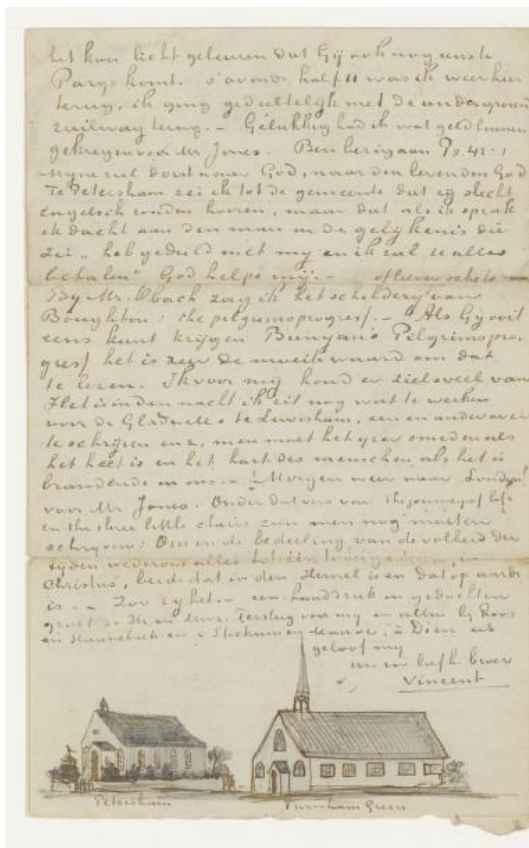 het kon licht gebeuren dat Gij ook nog eens te
Parys komt. s'avonds half 11 was ik weer hier
terug, ik ging gedeeltelijk met de underground
railway terug. - Gelukkig had ik wat geld binnen
gekregen voor Mr Jones. Ben bezig aan Ps. 42:1
Myne ziel dorst naar God, naar den levenden God
Te Petersham zei ik tot de gemeente dat zij slecht
Engelsch zouden hooren, maar dat als ik sprak
ik dacht aan den man in de gelijkenis die
zei "heb geduld met my en ik zal U alles
betalen" God helpe mij. -
By Mr. Obach zag ik het schildery van
Boughton: the pilgrimsprogress. - Als Gij ooit
eens kunt krijgen Bunyan's Pilgrimspro-
gress het is zeer de moeite waard om dat
te lezen. Ik voor my houd er zielsveel van
Het is in den nacht ik zit nog wat te werken
voor de Gladwells te Lewisham, een en ander over
te schrijven enz, men moet het yzer smeden als
het heet is en het hart des menschen als het is
brandende in ons. - Morgen weer naar Londen
voor Mr Jones. Onder dat vers van The journey of life
en the three little chairs zou men nog moeten
schryven: Om in de bedeeling van de volheid der
tijden wederom alles tot één te
Christus, beide dat in den Hemel is en dat op aarde
is. - Zoo zy het. - een handdruk in gedachten
groet Mr en Mevr. Tersteeg voor my en allen bij Roos
en Haanebeek en v Stockum en Mauve, à Dieu en
geloof my
liefh. broer
Vincent
Petersham
Turnham Green